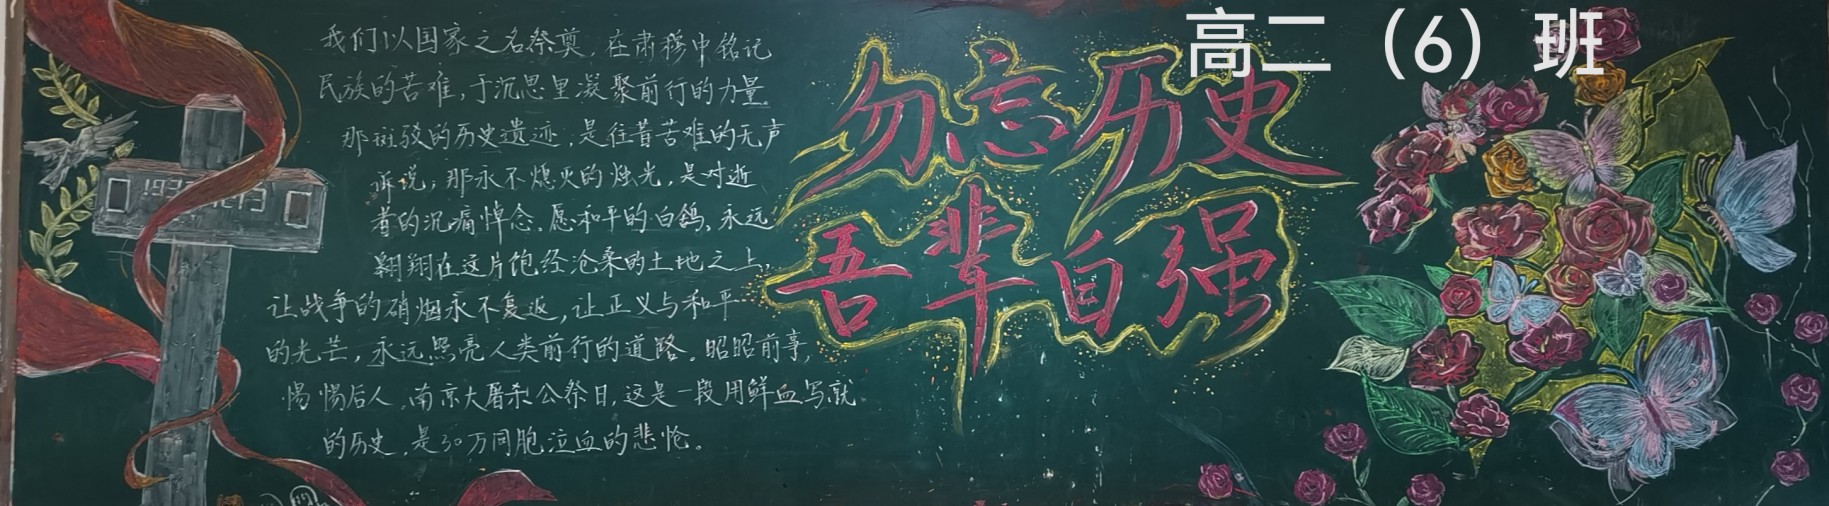 高二（6）班
勿忘历史
吾辈自强
我们以国家之名祭奠，在肃穆中铭记
民族的苦难，于沉思里凝聚前行的力量。
那斑驳的历史遗迹，是往昔苦难的无声
诉说；那永不熄灭的烛光，是对逝
者的沉痛悼念。愿和平的白鸽，永远
翱翔在这片饱经沧桑的土地之上，
让战争的硝烟永不复返，让正义与和平
的光芒，永远照亮人类前行的道路。昭昭前事，
惕惕后人。南京大屠杀公祭日，这是一段用鲜血写就
的历史，是30万同胞泣血的悲怆。